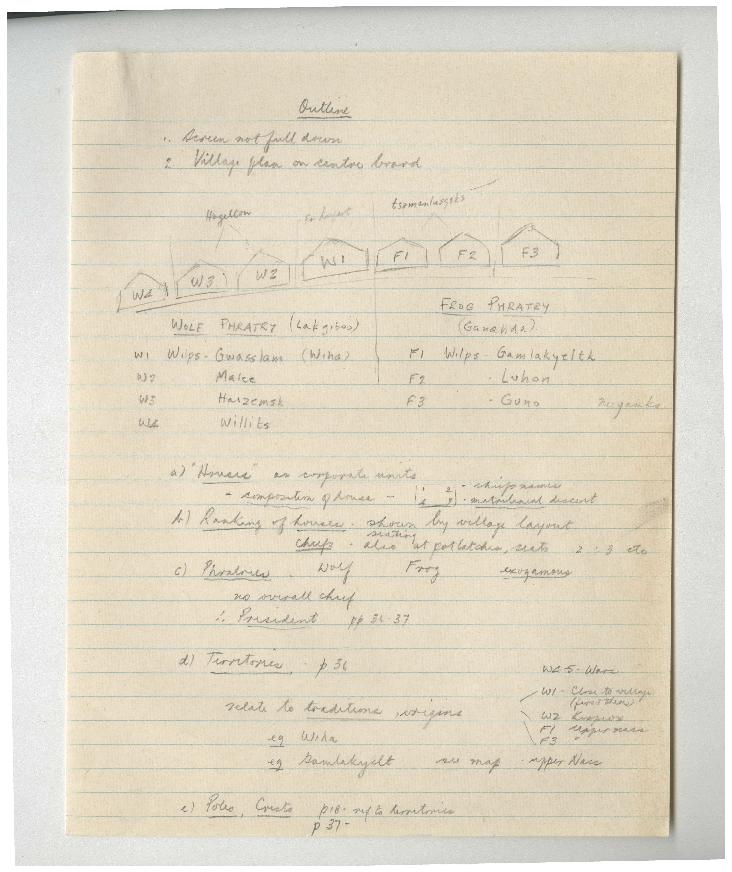 Outline
1. Screen not full down
2 Village plan on centre board
Hagellow tsemanlaxgyks
W4 W3 W2 W1 F1 F2 F3
FROG PHRATRY
WOLF PHRATRY (Lakgiboo) (Ganahda)
W1 Wilps-Gwasslam (Wiha) F1 Wilps-Gamlakyeltk
W2 Malee F2 - Luhon
W3 Haizemsk F3 - Guno
W4 Willits
a) "Houses" as corporate units
- composition of house - 1 2 - chiefs names
- matrilineal descent
b) Ranking of houses - shown by village layout
seating
chiefs - also at potlatches, seats 2 : 3 etc
c) Phratries - Wolf Frog exogamous
no overall chief
∴ President pp 36-37
d) Territories - p 36
W4-5 - Wars
W1 - Close to village
relate to traditions, origins
W2
F1 Upper Nass
eg Wiha
F3 "
eg Gamlakyelt see map - upper Nass
e) Poles, Crests p18 - ref to territories
p 37-